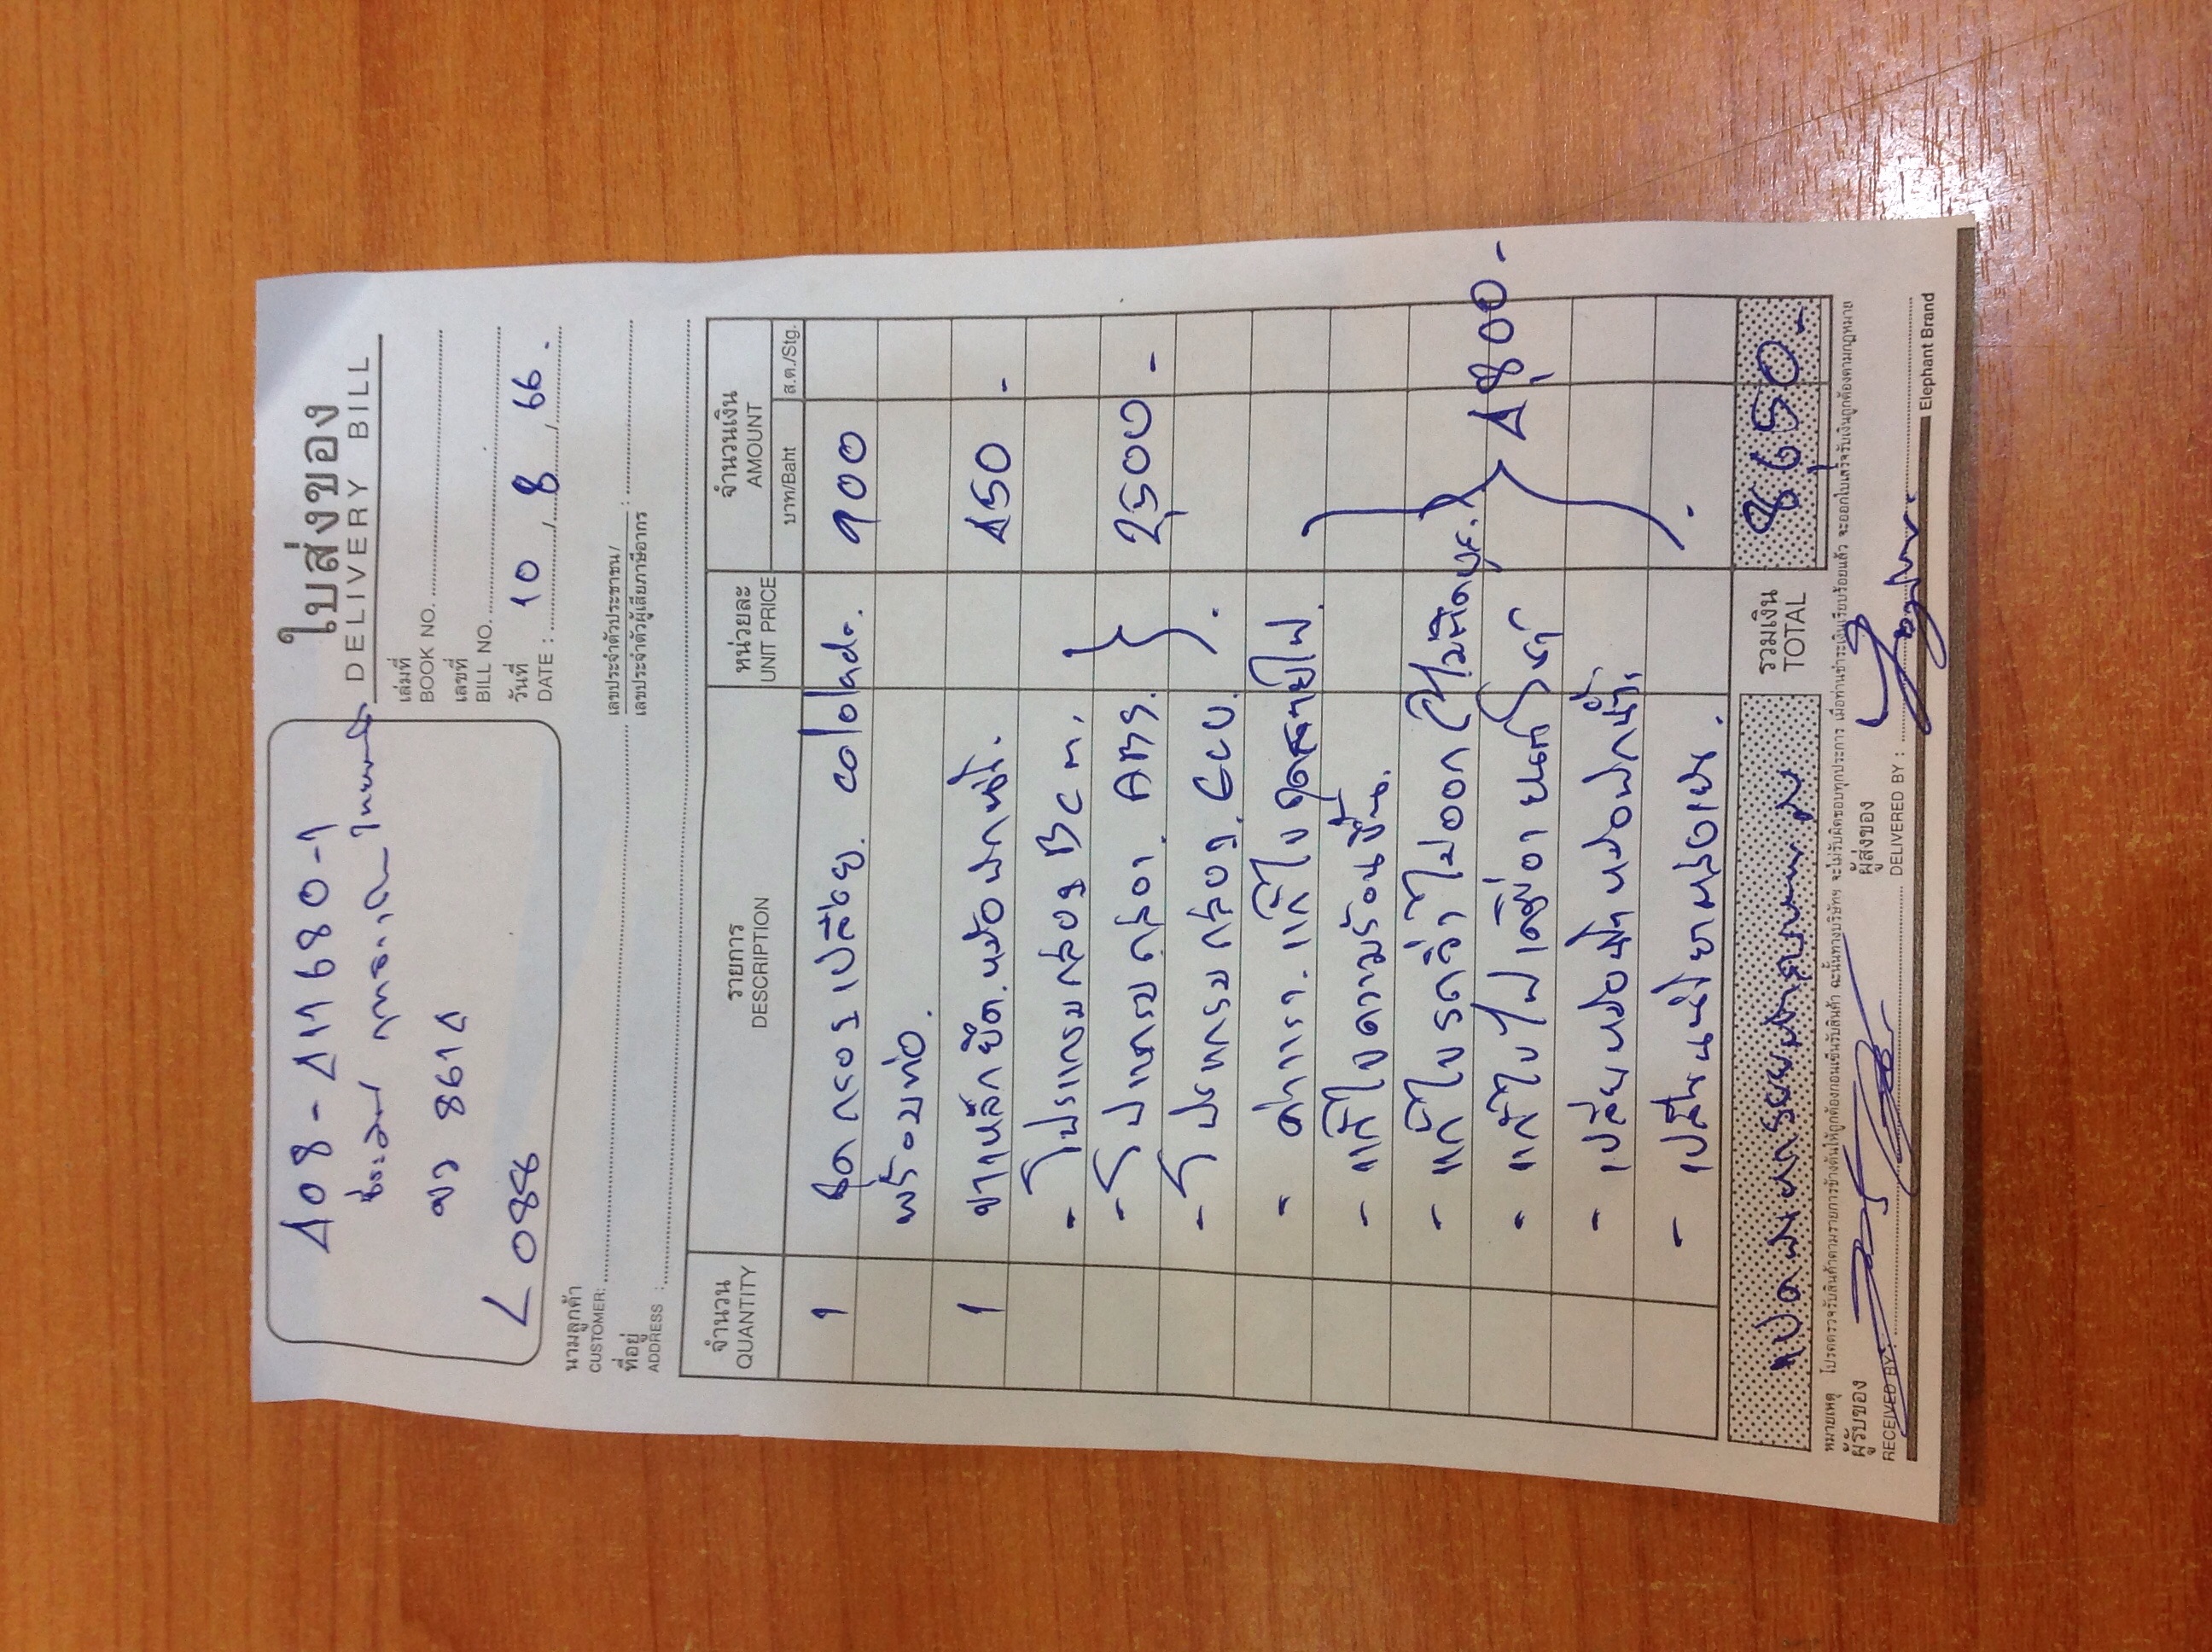 ใบส่งของ
DELIVERY BILL
408-411680-1
บว 8614
L 0886
เล่มที่
BOOK NO.
เลขที่
BILL NO.
วันที่
DATE : 10 / 8 / 66 .
นามลูกค้า
CUSTOMER:
เลขประจำตัวประชาชน/
เลขประจำตัวผู้เสียภาษีอากร :
ที่อยู่
ADDRESS :
จำนวน รายการ หน่วยละ จำนวนเงิน
QUANTITY DESCRIPTION UNIT PRICE AMOUNT
บาท/Baht ส.ต./Stg.
1 ชุดกรองเปลือย. colorado. 900
พร้อมท่อ.
1 ขาเหล็กยึด.หม้อพักหนึ่ง. 450 -
- โปรแกรมกล่อง BCM.
- โปรแกรมกล่อง. ABS. 2500 -
- โปรแกรมกล่อง. ECU.
- ค่าแรง. แก้ไขชุดสายไฟ.
- แก้ไขความร้อนขึ้น.
- แก้ไขรถวิ่งไม่ออก
- แก้ไขไฟเครื่องยนต์โชว์ 4800 -
- เปลี่ยนหม้อน้ำหม้อพักน้ำ.
- เปลี่ยนน้ำยาหล่อเย็น.
รวมเงิน
TOTAL 8650 -
หมายเหตุ โปรดตรวจรับสินค้าตามรายการข้างต้นให้ถูกต้องก่อนเซ็นรับสินค้า ฉะนั้นทางบริษัทฯ จะไม่รับผิดชอบทุกประการ เมื่อท่านชำระเงินเรียบร้อยแล้ว จะออกใบเสร็จรับเงินถูกต้องตามกฎหมาย
ผู้รับของ ผู้ส่งของ
RECEIVED BY: DELIVERED BY :
Elephant Brand